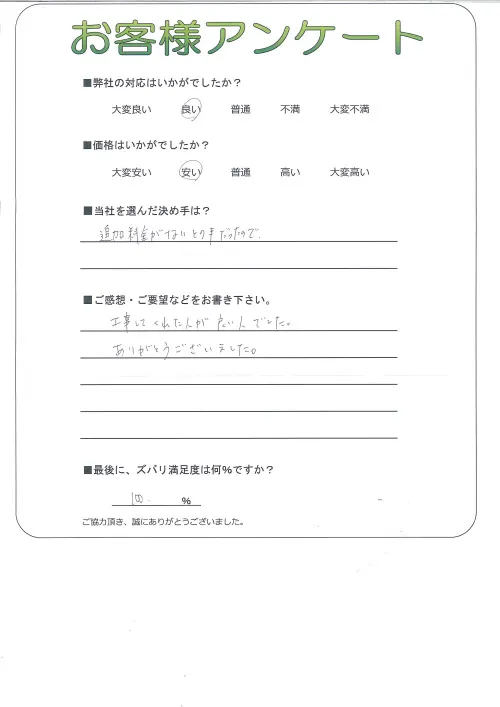 お客様アンケート
■弊社の対応はいかがでしたか？
大変良い 良い 普通 不満 大変不満
■価格はいかがでしたか？
大変安い 安い 普通 高い 大変高い
■当社を選んだ決め手は？
追加料金がないとの事だったので、
■ご感想・ご要望などをお書き下さい。
工事してくれた人が良い人でした。
ありがとうございました。
■最後に、ズバリ満足度は何%ですか？
100. %
ご協力頂き、誠にありがとうございました。